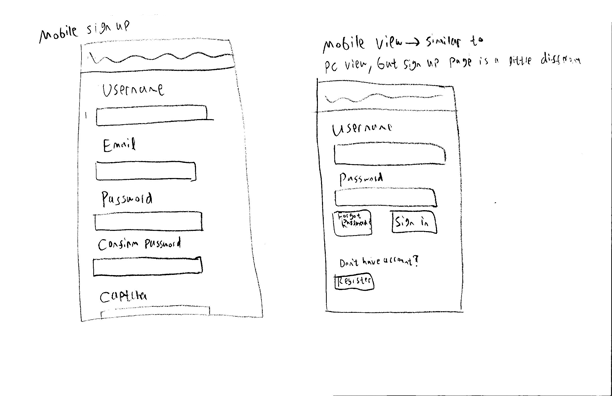 Mobile sign up
Username
Email
Password
Confirm Password
Captcha
Mobile view → similar to
PC view, but sign up page is a little different
Username
Password
Forgot
Password
Sign in
Don't have account?
Register